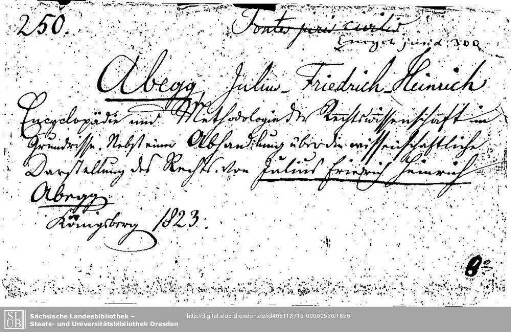 250.
Fontes juris civilis
Abegg, Julius Friedrich Heinrich
Encyclopädie und Methodologie der Rechtswissenschaft im
Grundrisse. Nebst einer Abhandlung über die wissenschaftliche
Darstellung des Rechts. von Julius Friedrich Heinrich
Abegg
Königsberg 1823.
8°
SLUB
Sächsische Landesbibliothek –
Staats- und Universitätsbibliothek Dresden